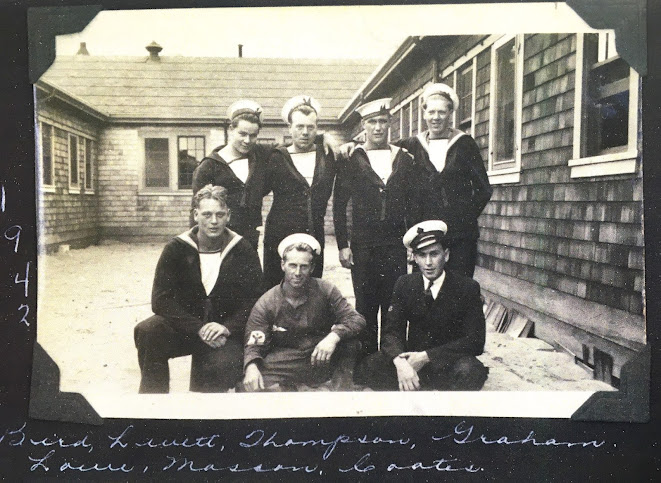 1942
Bird, Livett, Thompson, Graham.
Lowe, Masson, Coates.